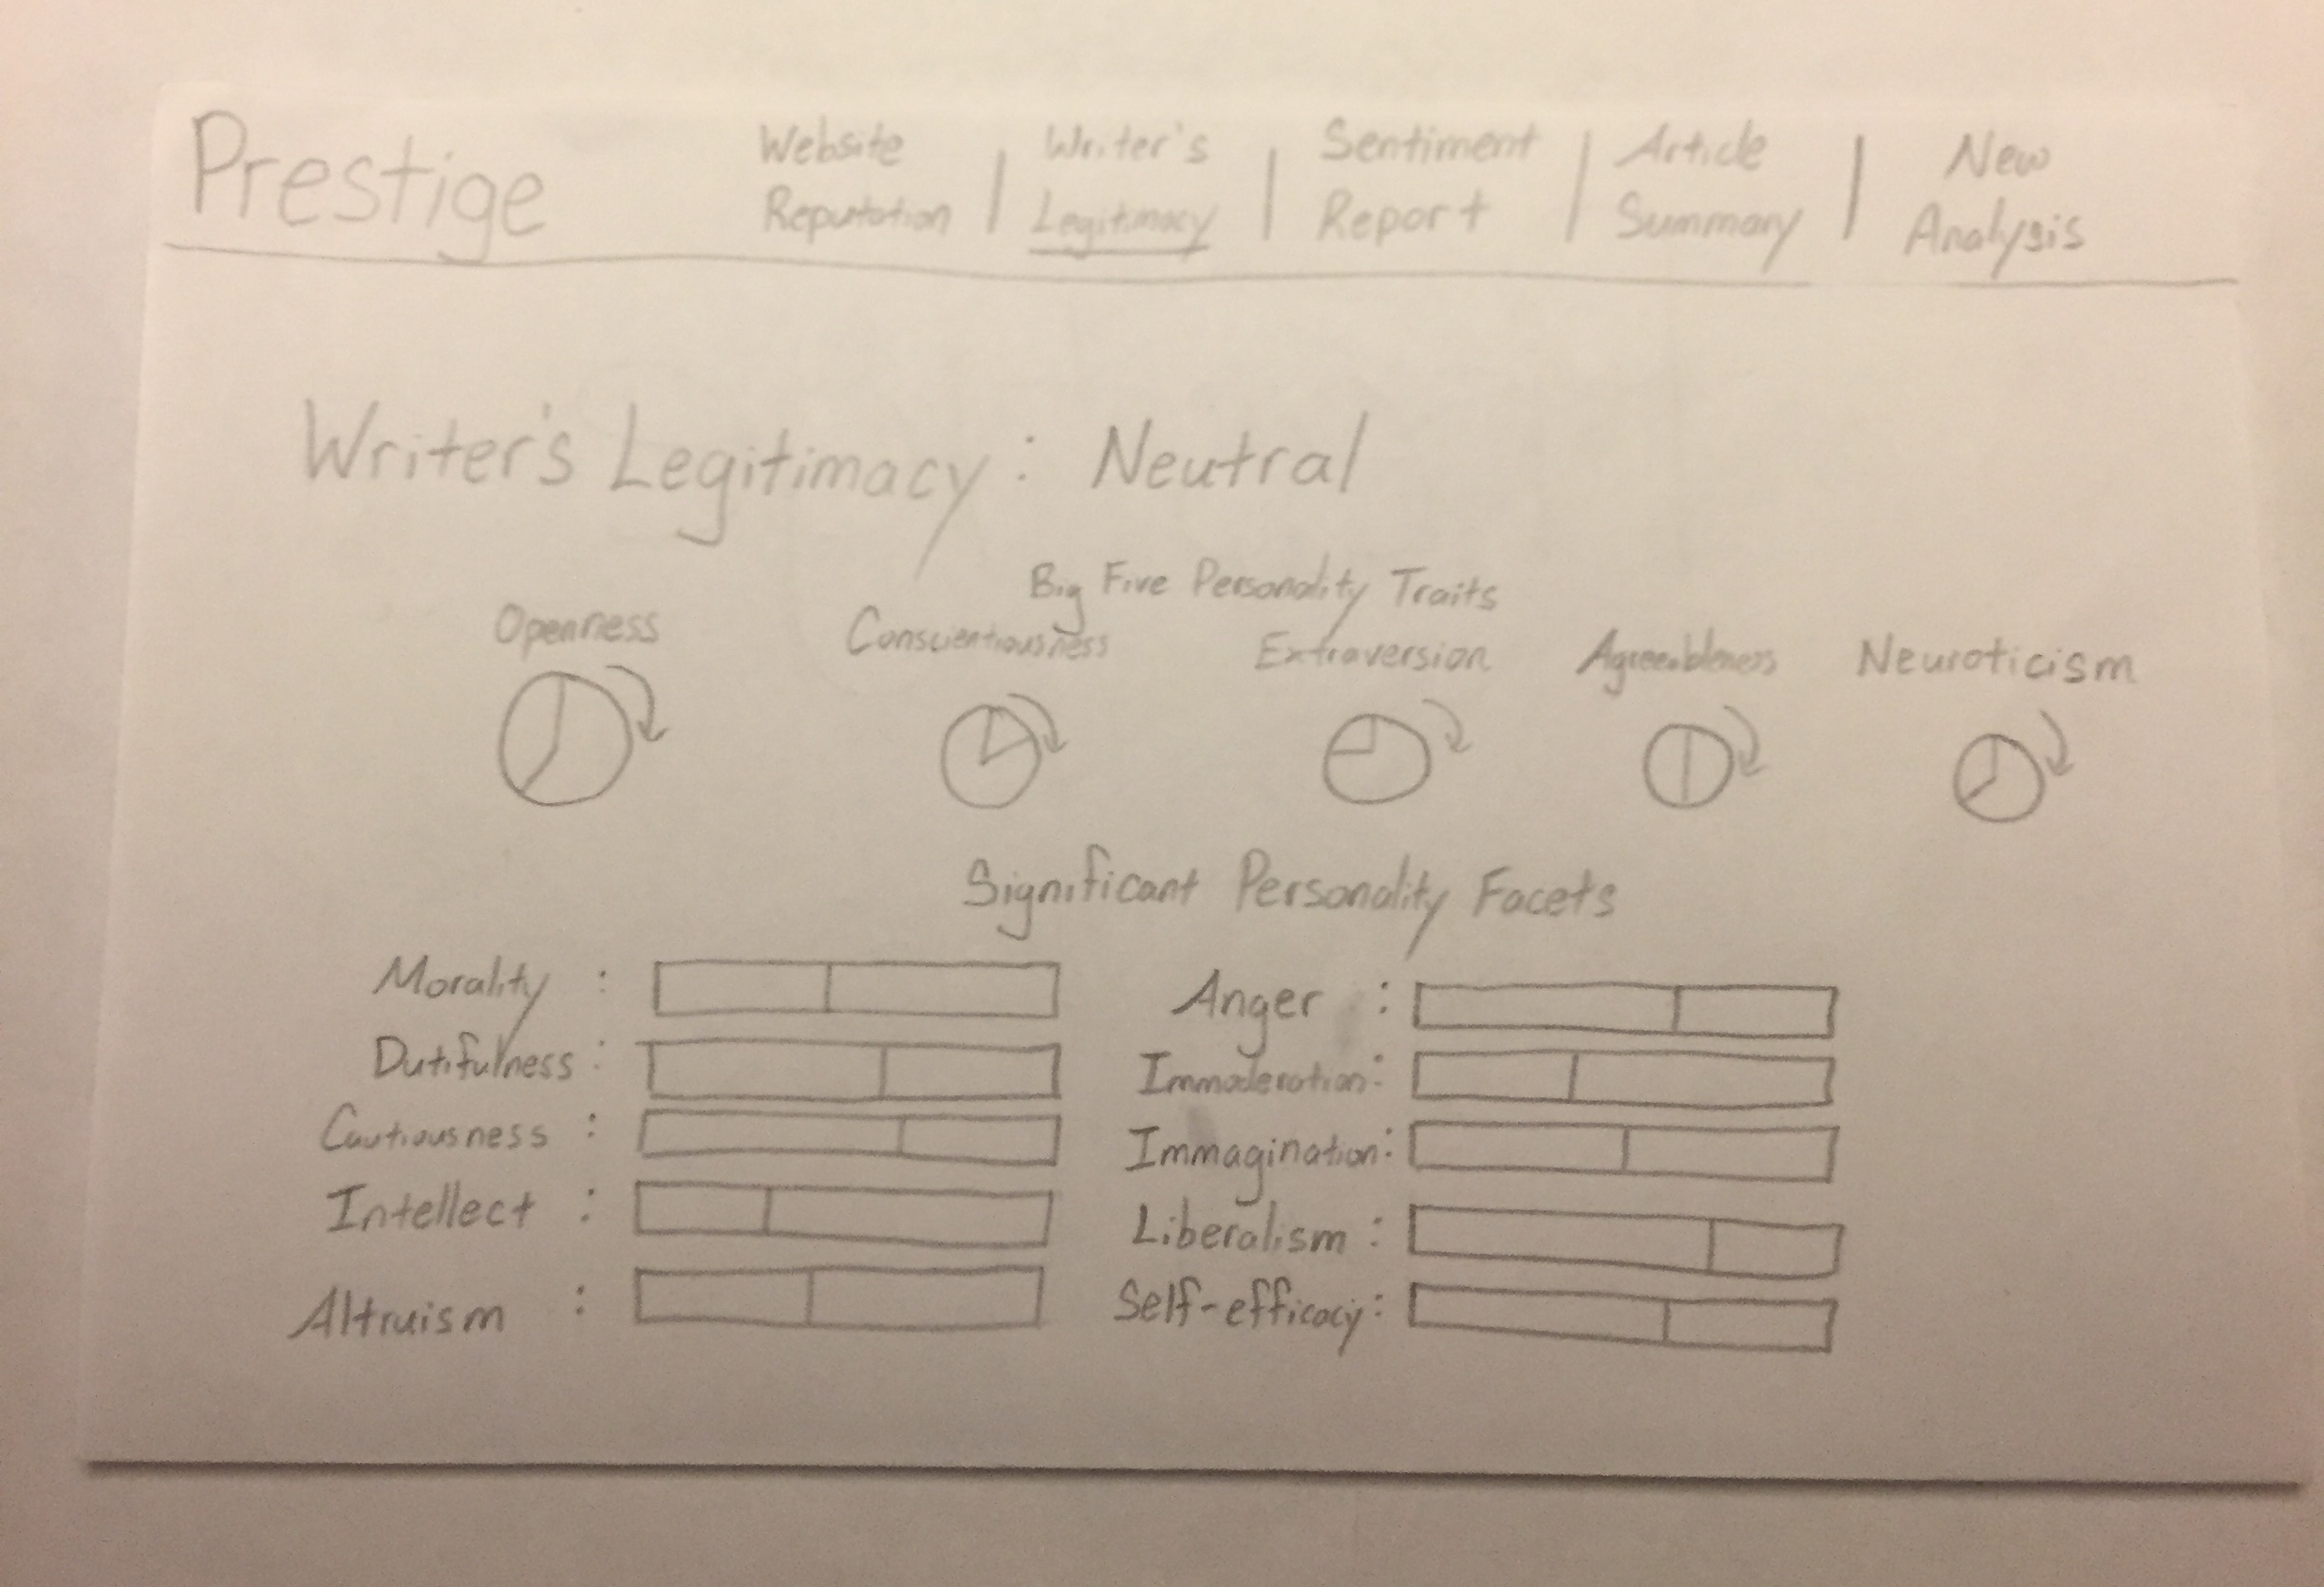 Prestige
Website Reputation | Writer's Legitimacy | Sentiment Report | Article Summary | New Analysis
Writer's Legitimacy : Neutral
Big Five Personality Traits
Openness Conscientiousness Extraversion Agreeableness Neuroticism
Significant Personality Facets
Morality : Anger :
Dutifulness : Immoderation :
Cautiousness : Immagination :
Intellect : Liberalism :
Altruism : Self-efficacy :